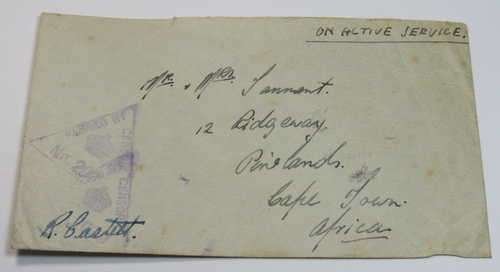 ON ACTIVE SERVICE.
Mr. & Mrs. Tannant.
12 Ridgeway,
Pinelands.
Cape Town.
Africa
PASSED BY
No.
R. Castell.